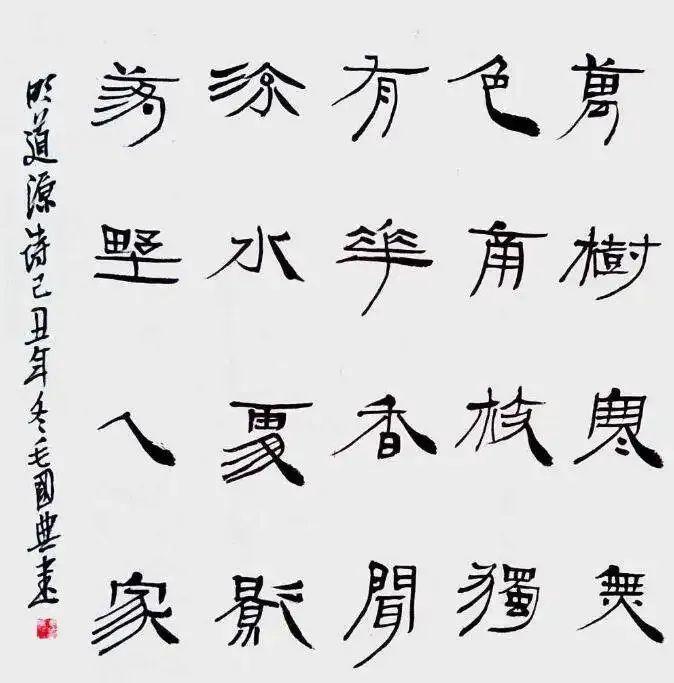 萬樹寒無
色南枝獨
有華香聞
流水處影
落野人家
明道源詩己丑年冬毛國典書